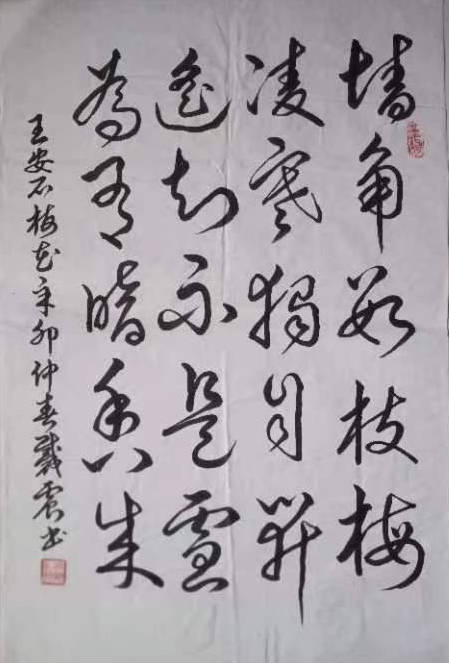 墙角数枝梅
凌寒獨自開
遥知不是雪
為有暗香来
王安石梅花辛卯仲春戴震书